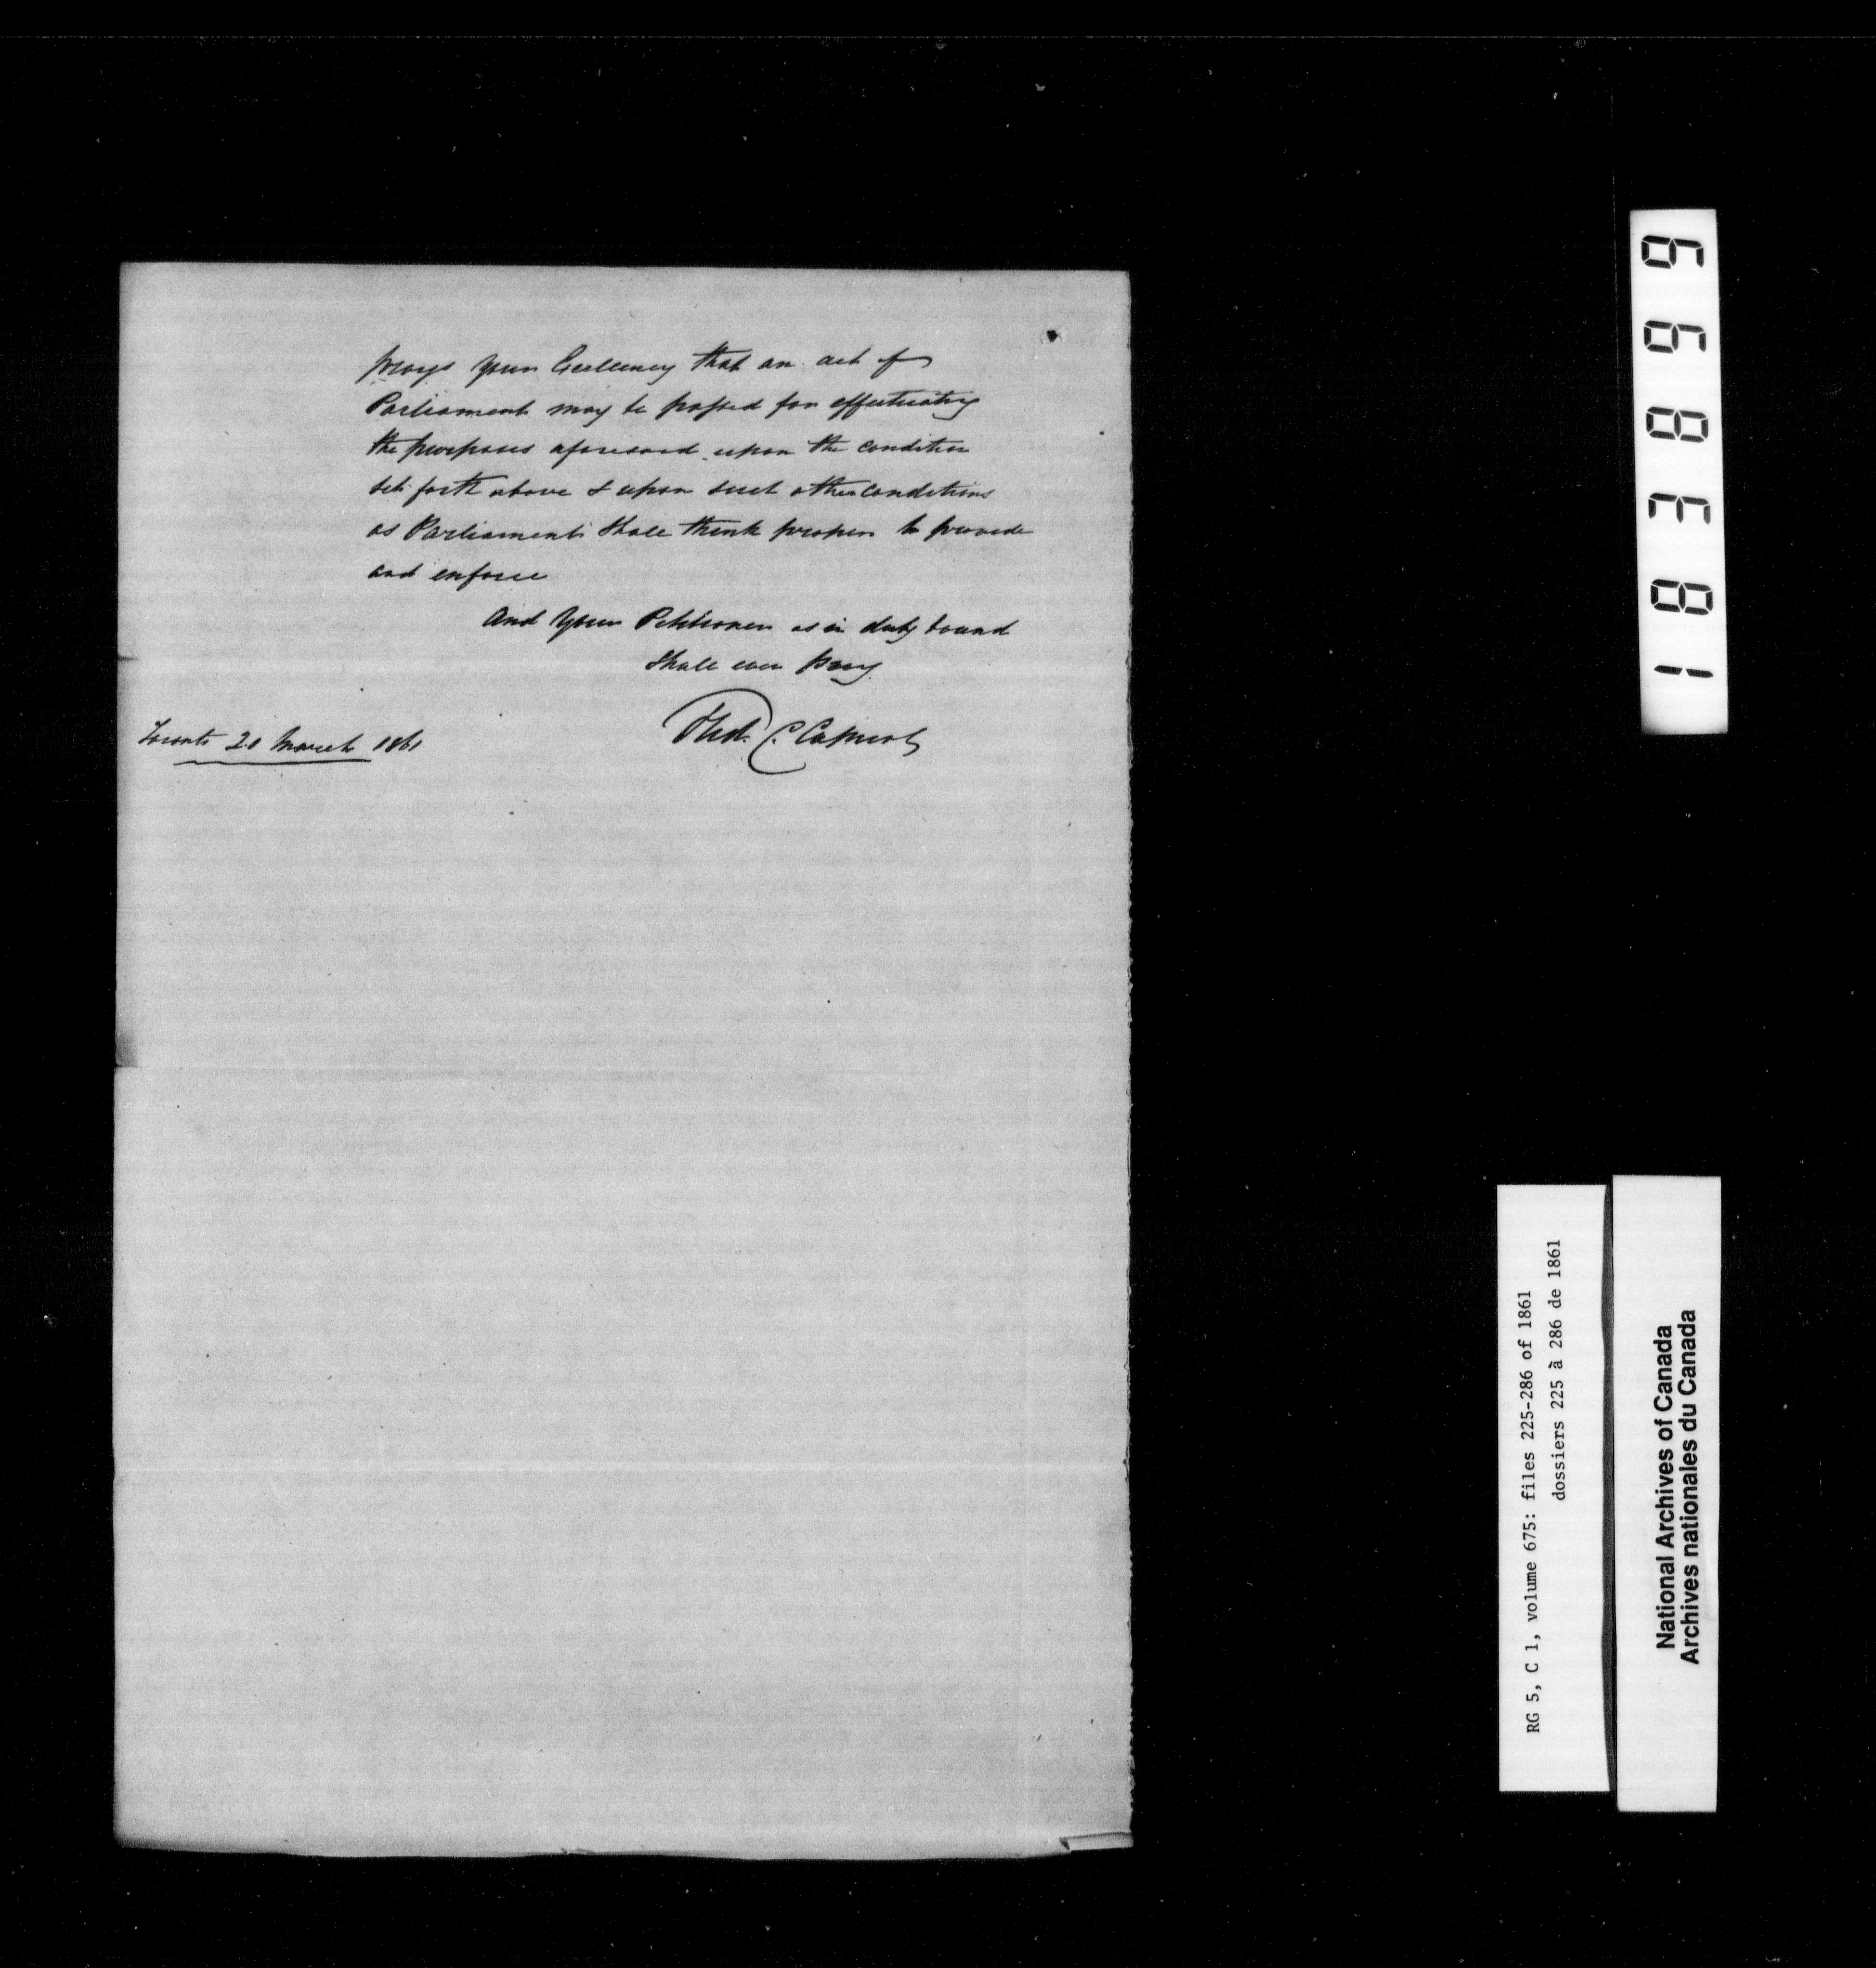 prays Your Excellency that an act of
Parliament may be passed for effectuating
the purposes aforesaid upon the condition
set forth above & upon such other conditions
as Parliament shall think proper to provide
and enforce
And Your Petitioner as in duty bound
Shall ever pray
Toronto 20 March 1861
Fred. C. Capreol
18389 9
RG 5, C 1, volume 675: files 225-286 of 1861
dossiers 225 à 286 de 1861
National Archives of Canada
Archives nationales du Canada